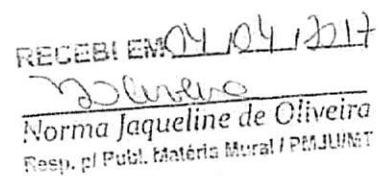 RECEBI EM 04/04/2017
Norma Jaqueline de Oliveira
Resp. p/ Publ. Matéria Mural / PMJU/MT